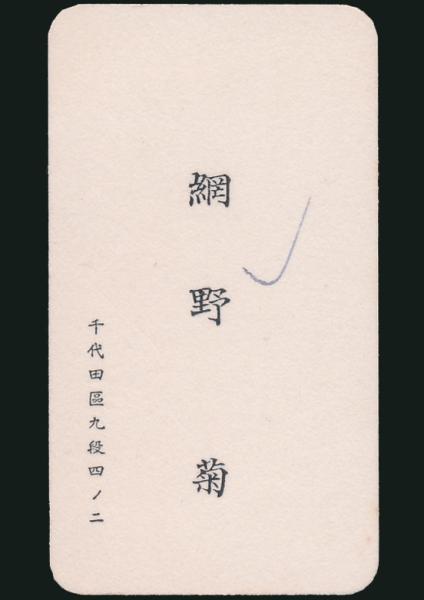 網野菊
千代田區九段四ノ二